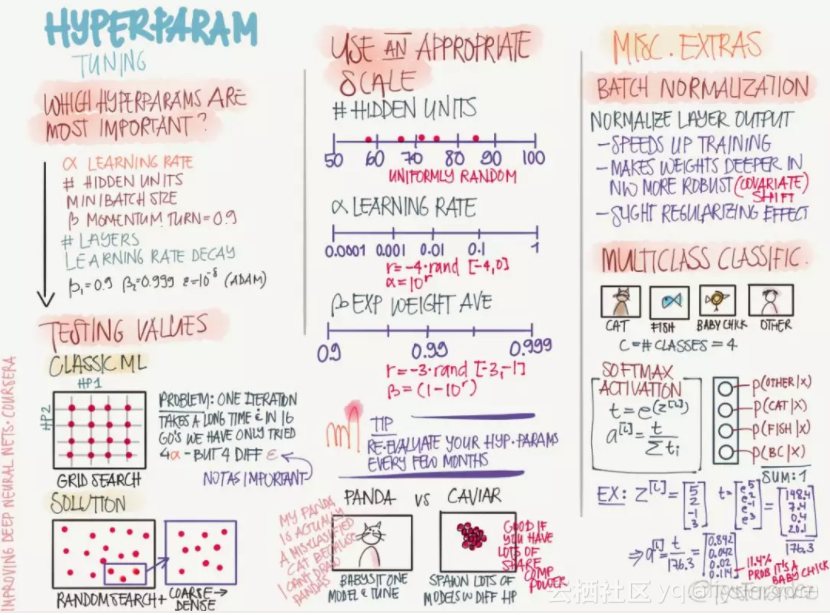 HYPERPARAM
TUNING
WHICH HYPERPARAMS ARE
MOST IMPORTANT?
α LEARNING RATE
# HIDDEN UNITS
MINIBATCH SIZE
β MOMENTUM TURN=0.9
# LAYERS
LEARNING RATE DECAY
β₁=0.9 β₂=0.999 ε=10⁻⁸ (ADAM)
TESTING VALUES
CLASSIC ML
HP1
HP2
GRID SEARCH
PROBLEM: ONE ITERATION
TAKES A LONG TIME & IN 16
GO'S WE HAVE ONLY TRIED
4α - BUT 4 DIFF ε
NOT AS IMPORTANT
SOLUTION
RANDOM SEARCH + COARSE→
DENSE
IMPROVING DEEP NEURAL NETS·COURSERA
USE AN APPROPRIATE
SCALE
# HIDDEN UNITS
50 60 70 80 90 100
UNIFORMLY RANDOM
α LEARNING RATE
0.0001 0.001 0.01 0.1 1
r=-4·rand [-4,0]
α=10ʳ
β EXP WEIGHT AVE
0.9 0.99 0.999
r=-3·rand [-3,-1]
β=(1-10ʳ)
TIP
RE-EVALUATE YOUR HYP.PARAMS
EVERY FEW MONTHS
PANDA VS CAVIAR
MY PANDA
IS ACTUALLY
A MISCLASSIFIED
CAT BECAUSE
I CAN'T DRAW
PANDAS
BABYSIT ONE
MODEL & TUNE
GOOD IF
YOU HAVE
LOTS OF
COMP
POWER
SPAWN LOTS OF
MODELS W DIFF HP
MISC. EXTRAS
BATCH NORMALIZATION
NORMALIZE LAYER OUTPUT
-SPEEDS UP TRAINING
-MAKES WEIGHTS DEEPER IN
NW MORE ROBUST (COVARIATE)
SHIFT
-SLIGHT REGULARIZING EFFECT
MULTICLASS CLASSIFIC.
CAT FISH BABY CHICK OTHER
C=# CLASSES=4
SOFTMAX
ACTIVATION
t=e^(z^[L])
a^[L]=t/∑tᵢ
P(OTHER|X)
P(CAT|X)
P(FISH|X)
P(BC|X)
SUM:1
EX: Z^[L]=[5 2 -1 3] t=[e⁵ e² e⁻¹ e³]=[148.4 7.4 0.4 20.1]
176.3
⇒a^[L] t/176.3 [0.842 0.042 0.02 0.114]
11.4%
PROB IT'S A
BABY CHICK
云栖社区